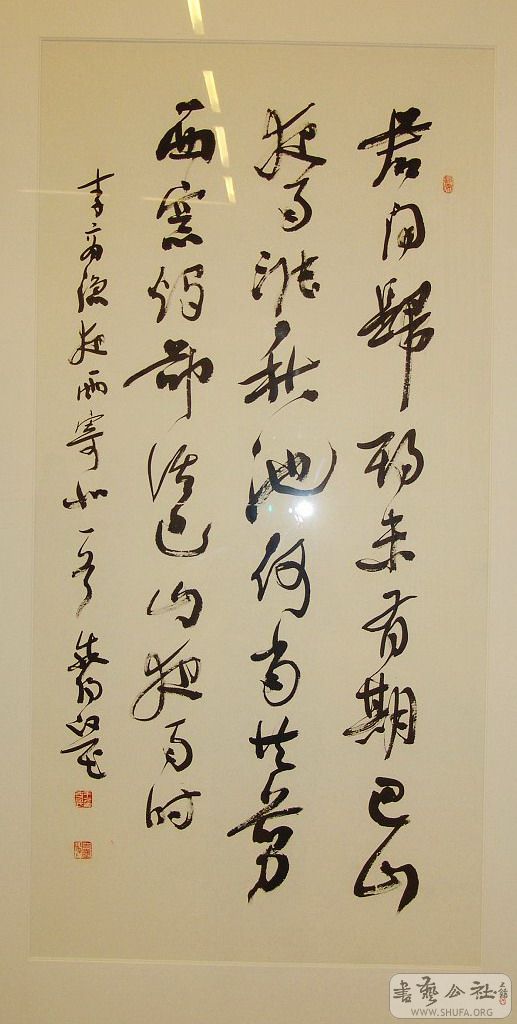 君问归期未有期巴山
夜雨涨秋池何当共剪
西窗烛却话巴山夜雨时
李商隐夜雨寄北一首
書藝公社
WWW.SHUFA.ORG